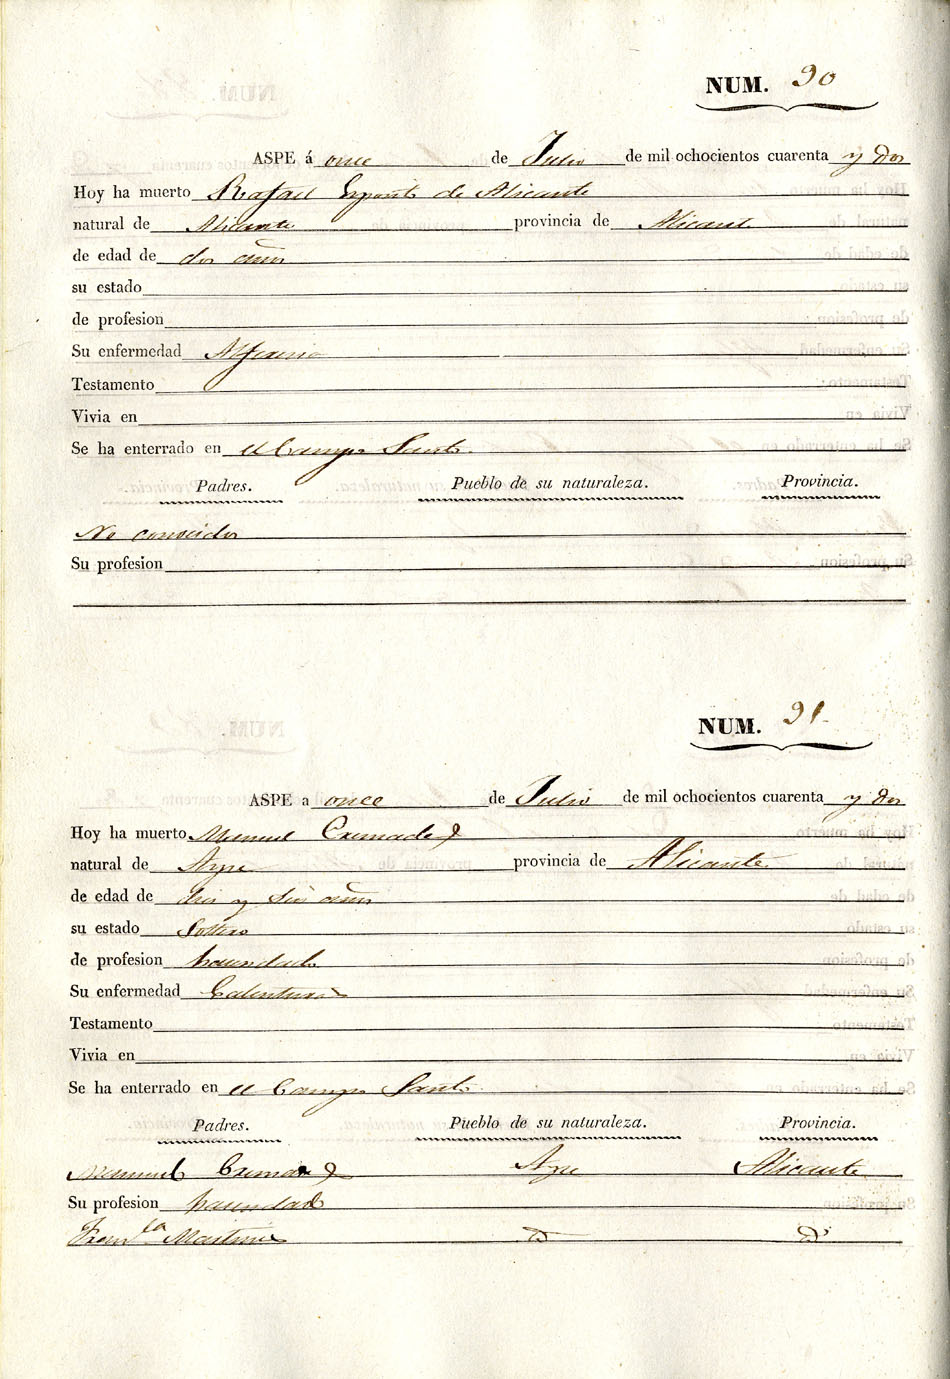 NUM. 90
ASPE á once de Julio de mil ochocientos cuarenta y dos
Hoy ha muerto Rafael Exposito de Alicante
natural de Alicante provincia de Alicante
de edad de dos años
su estado
de profesion
Su enfermedad Alferecia
Testamento
Vivia en
Se ha enterrado en el Campo Santo
Padres. Pueblo de su naturaleza. Provincia.
No conocidos
Su profesion
NUM. 91
ASPE a once de Julio de mil ochocientos cuarenta y dos
Hoy ha muerto Manuel Cremades
natural de Aspe provincia de Alicante
de edad de dies y seis años
su estado Soltero
de profesion hacendado
Su enfermedad Calenturas
Testamento
Vivia en
Se ha enterrado en el Campo Santo
Padres. Pueblo de su naturaleza. Provincia.
Manuel Cremades Aspe Alicante
Su profesion hacendado
Fran.ca Martines